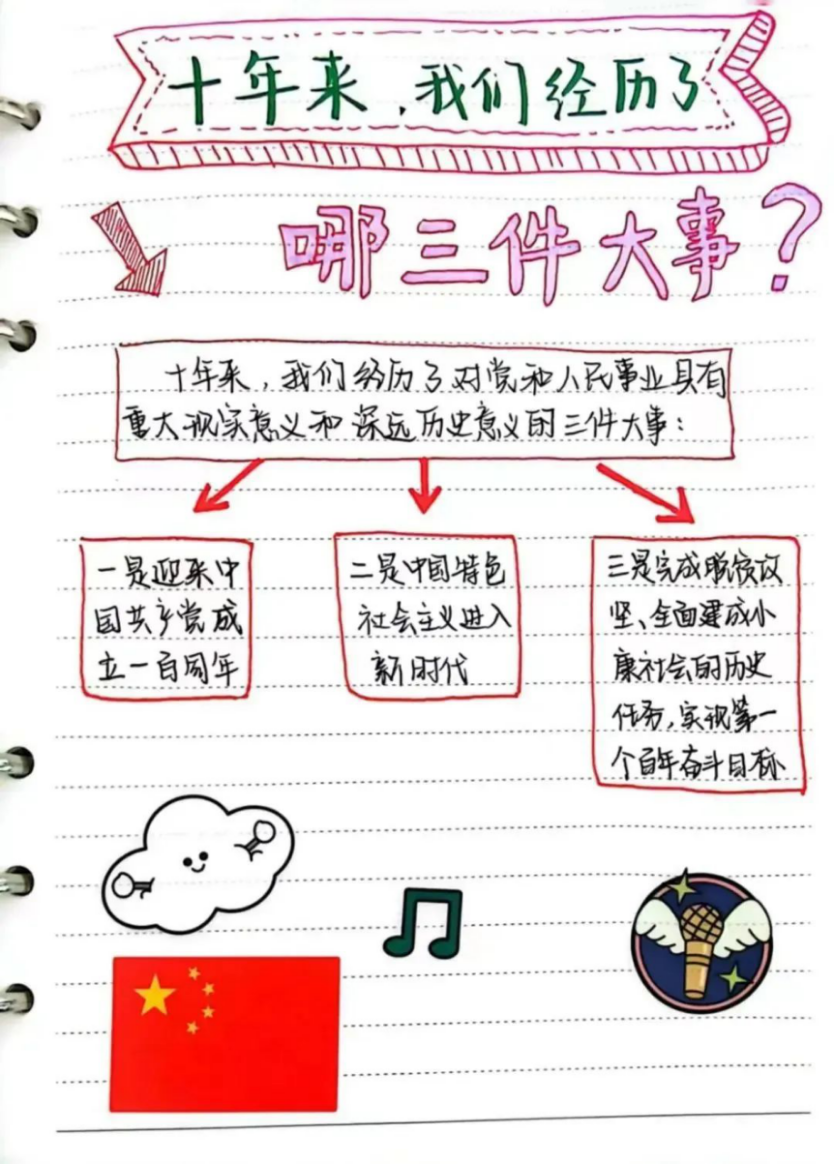 十年来,我们经历了
哪三件大事?
十年来,我们经历了对党和人民事业具有
重大现实意义和深远历史意义的三件大事:
一是迎来中
国共产党成
立一百周年
二是中国特色
社会主义进入
新时代
三是完成脱贫攻
坚、全面建成小
康社会的历史
任务,实现第一
个百年奋斗目标